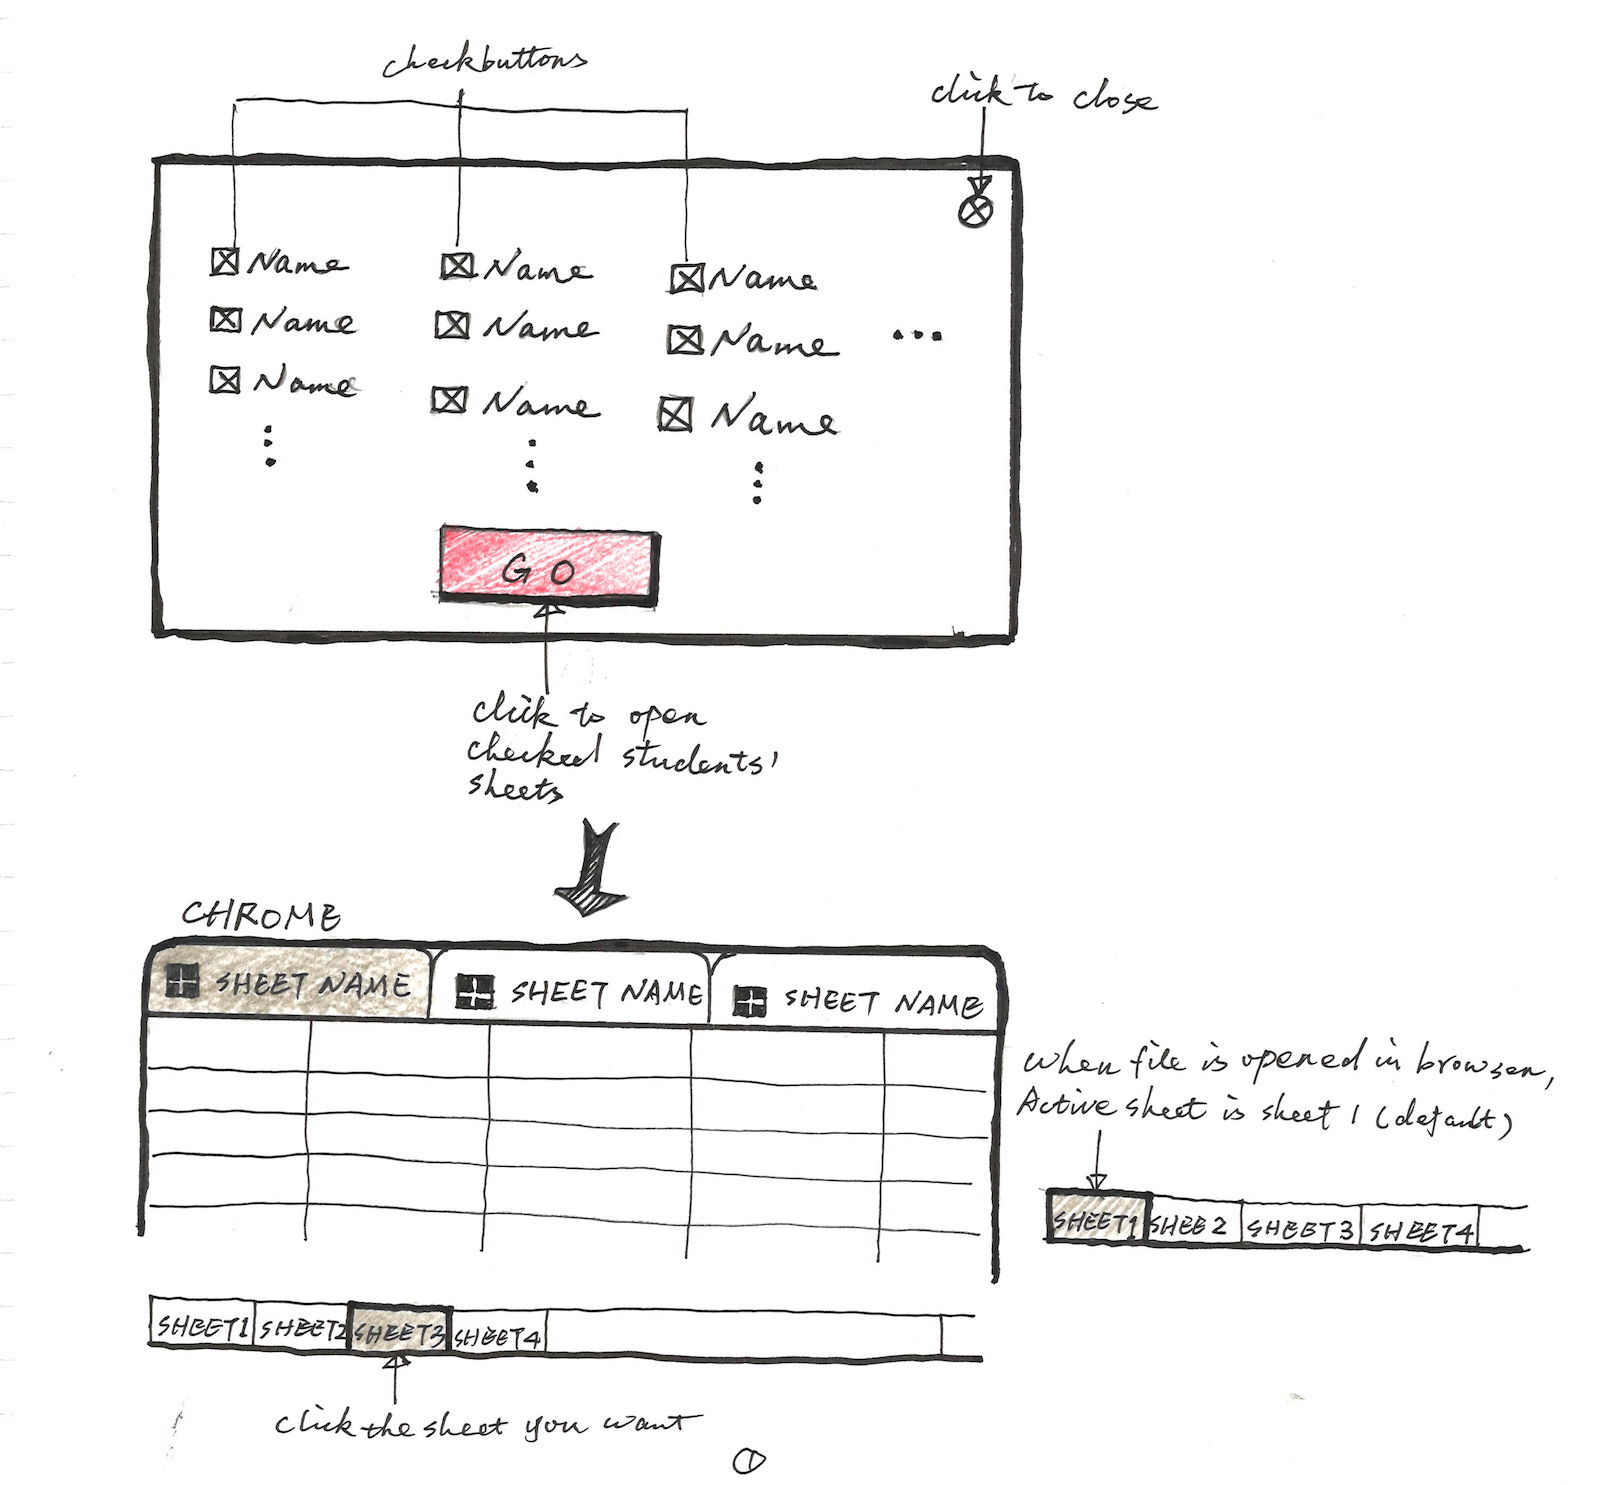 checkbuttons
click to close
Name Name Name
Name Name Name
Name Name Name
GO
click to open
checked students'
sheets
CHROME
SHEET NAME SHEET NAME SHEET NAME
when file is opened in browser,
Active sheet is sheet 1 (default)
SHEET1 SHEE2 SHEET3 SHEET4
SHEET1 SHEET2 SHEET3 SHEET4
click the sheet you want
1